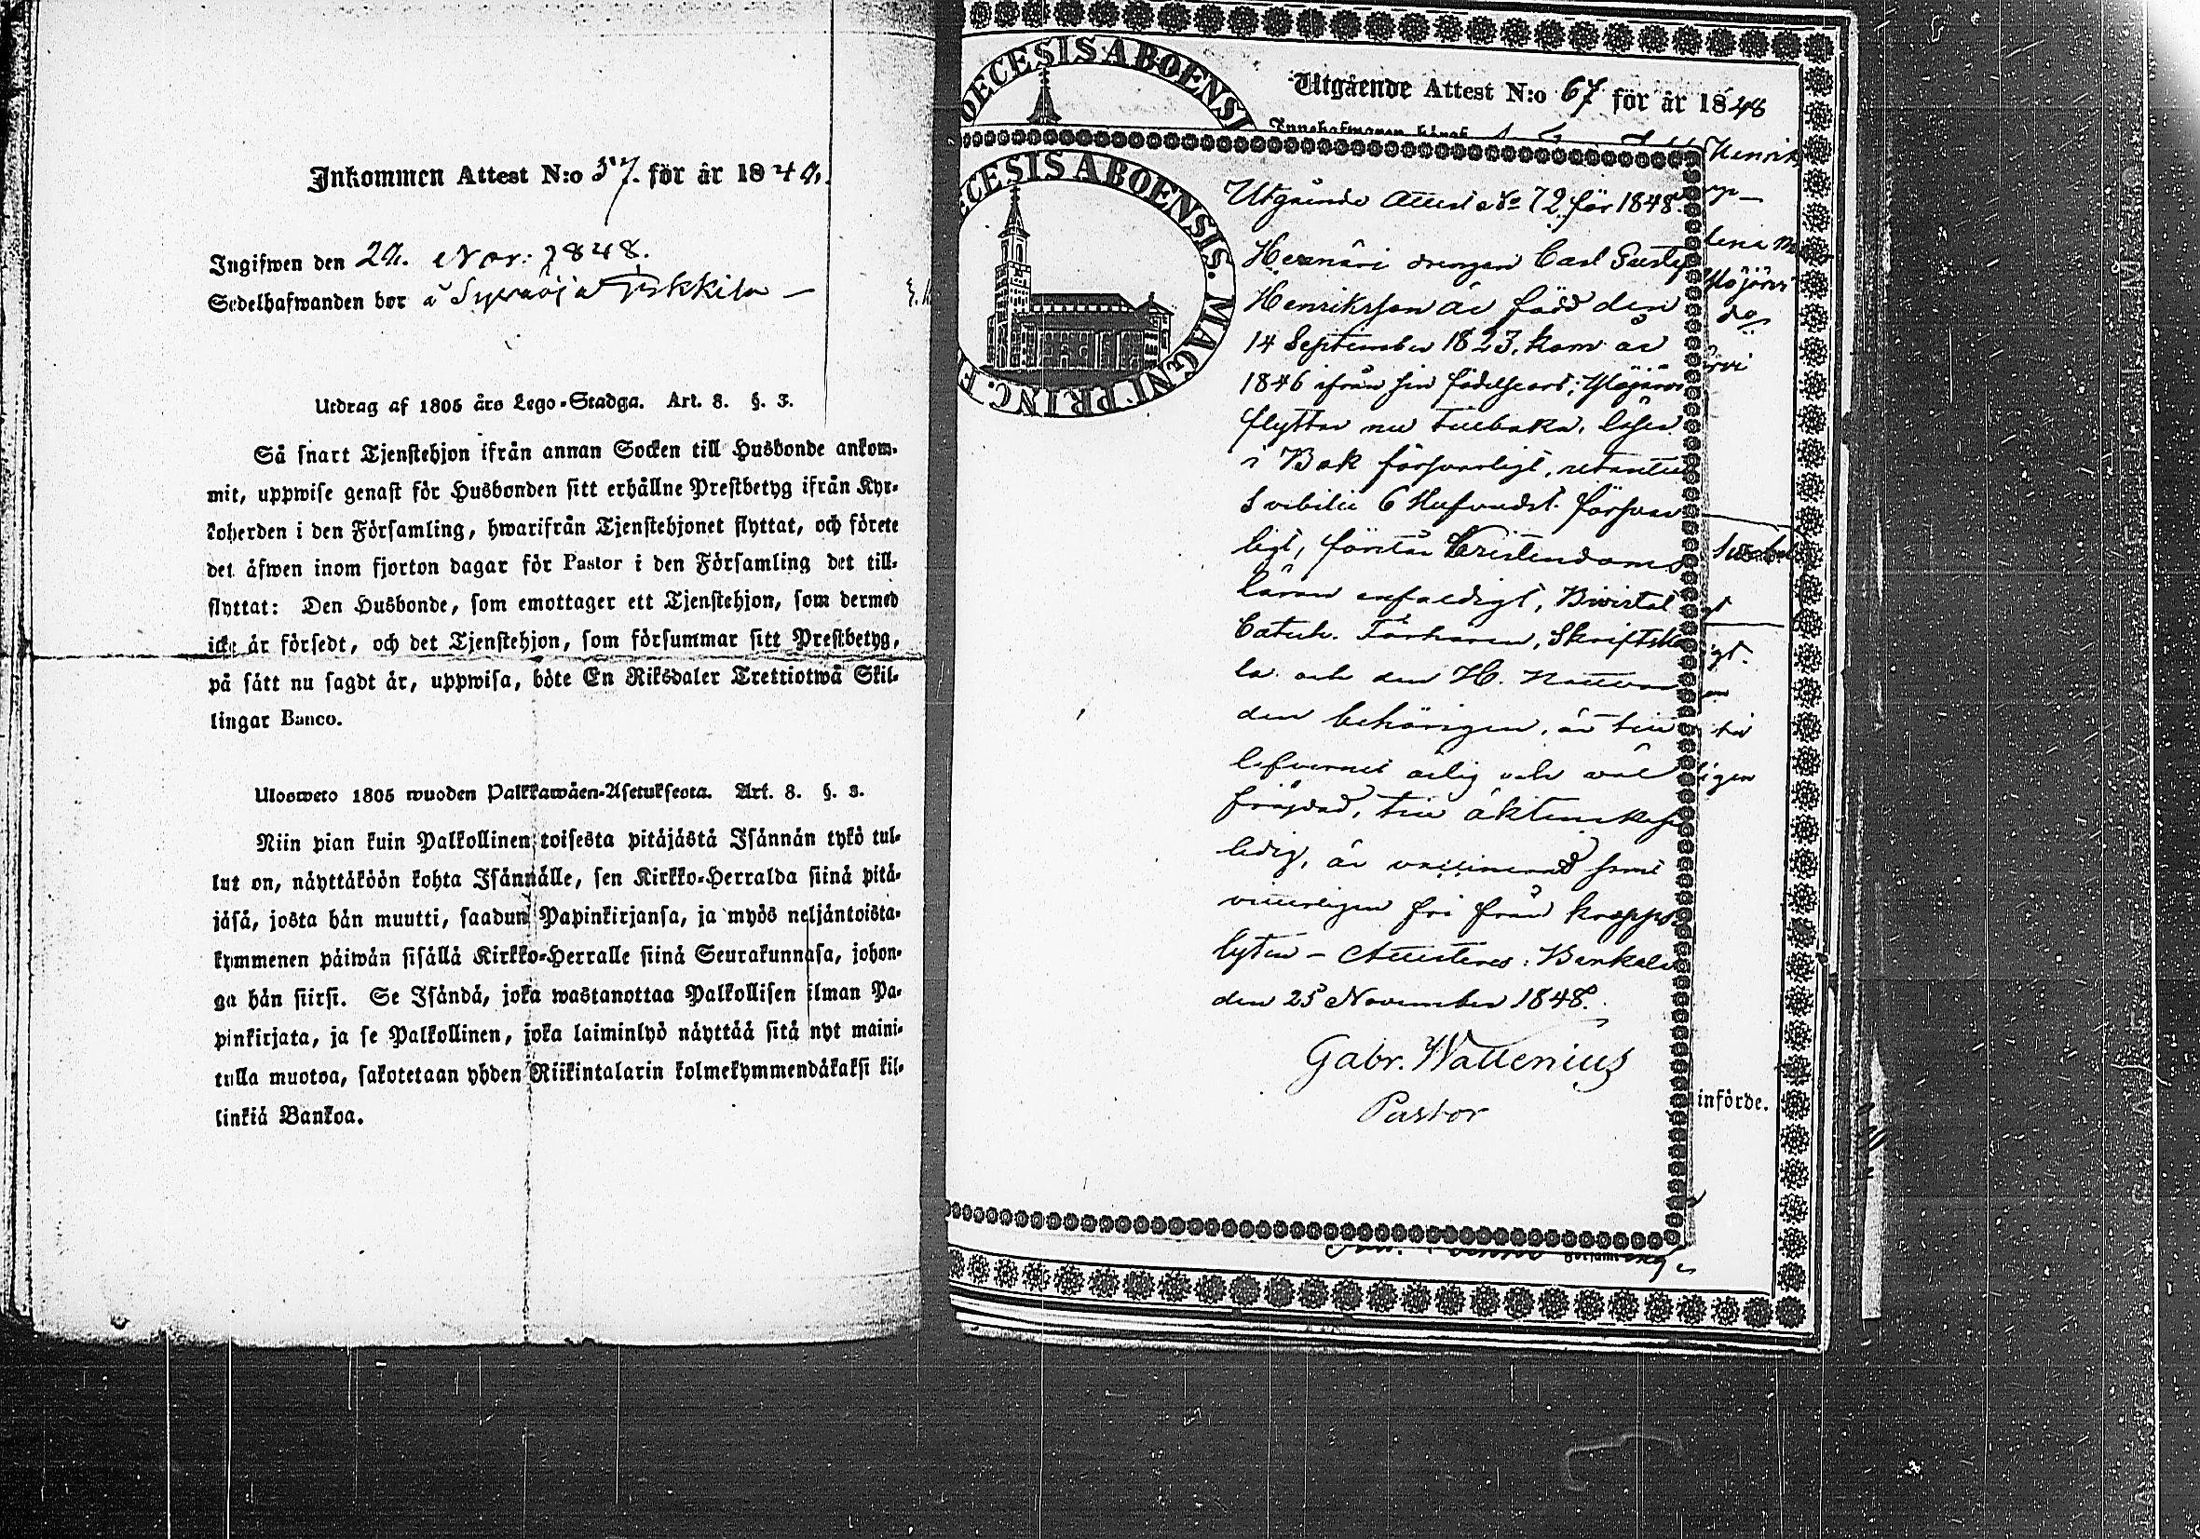 Inkommen Attest N:o 57. för år 184
Ingifwen den Nov: 1848.
Sedelhafwanden bor å
Utdrag af 1805 års Lego-Stadga. Art. 8. §. 3.
Så snart Tjenstehjon ifrån annan Socken till Husbonde ankom-
mit, uppwise genast för Husbonden sitt erhållne Prestbetyg ifrån Kyr-
koherden i den Församling, hwarifrån Tjenstehjonet flyttat, och förete
det äfwen inom fjorton dagar för Pastor i den Församling det till-
flyttat: Den Husbonde, som emottager ett Tjenstehjon, som dermed
icke är försedt, och det Tjenstehjon, som försummar sitt Prestbetyg,
på sätt nu sagdt är, uppwisa, böte En Riksdaler Trettiotwå Skil-
lingar Banco.
Ulosweto 1805 wuoden Palkkawäen-Asetuksesta. Art. 8. §. 3.
Niin pian kuin Palkollinen toisesta pitäjästä Isännän tykö tul-
lut on, näyttäköön kohta Isännälle, sen Kirkko-Herralda siinä pitä-
jäsä, josta hän muutti, saadun Papinkirjansa, ja myös neljäntoista-
kymmenen päiwän sisällä Kirkko-Herralle siinä Seurakunnasa, johon-
ga hän siirsi. Se Isändä, joka wastanottaa Palkollisen ilman Pa-
pinkirjata, ja se Palkollinen, joka laiminlyö näyttää sitä nyt maini-
tulla muotoa, sakotetaan yhden Riikintalarin kolmekymmendäkaksi kil-
linkiä Bankoa.
DIOECESIS ABOENSI
Utgående Attest N:o 67 för år 1848
Innehafwaren häraf
Henrik
ECESIS ABOENSIS. MAGNI PRINC. F
Utgående Attest No 72 för 1848.
Hemäri drengen Carl Gustaf
Henriksson är född den
14 September 1823, kom år
1846 ifrån sin födelseort; Ylöjärvi
flyttar nu tillbaka, läser
i Bok försvarligt, utantill
Svebilii 6 Hufvudst. försvar
ligt, förstår Christendoms
läran enfaldigt, Bivistat
Catech. Förhören, Skriftska
la och den H. Nattvar
den behörigen, är till
lefvernet ärlig och väl
fräjdad, till äktenskap
ledig, är vaccinerad samt
fri från kropps
lyten – Attesteras: Birkala
den 25 November 1848.
Gabr. Wallenius
Pastor
införde.